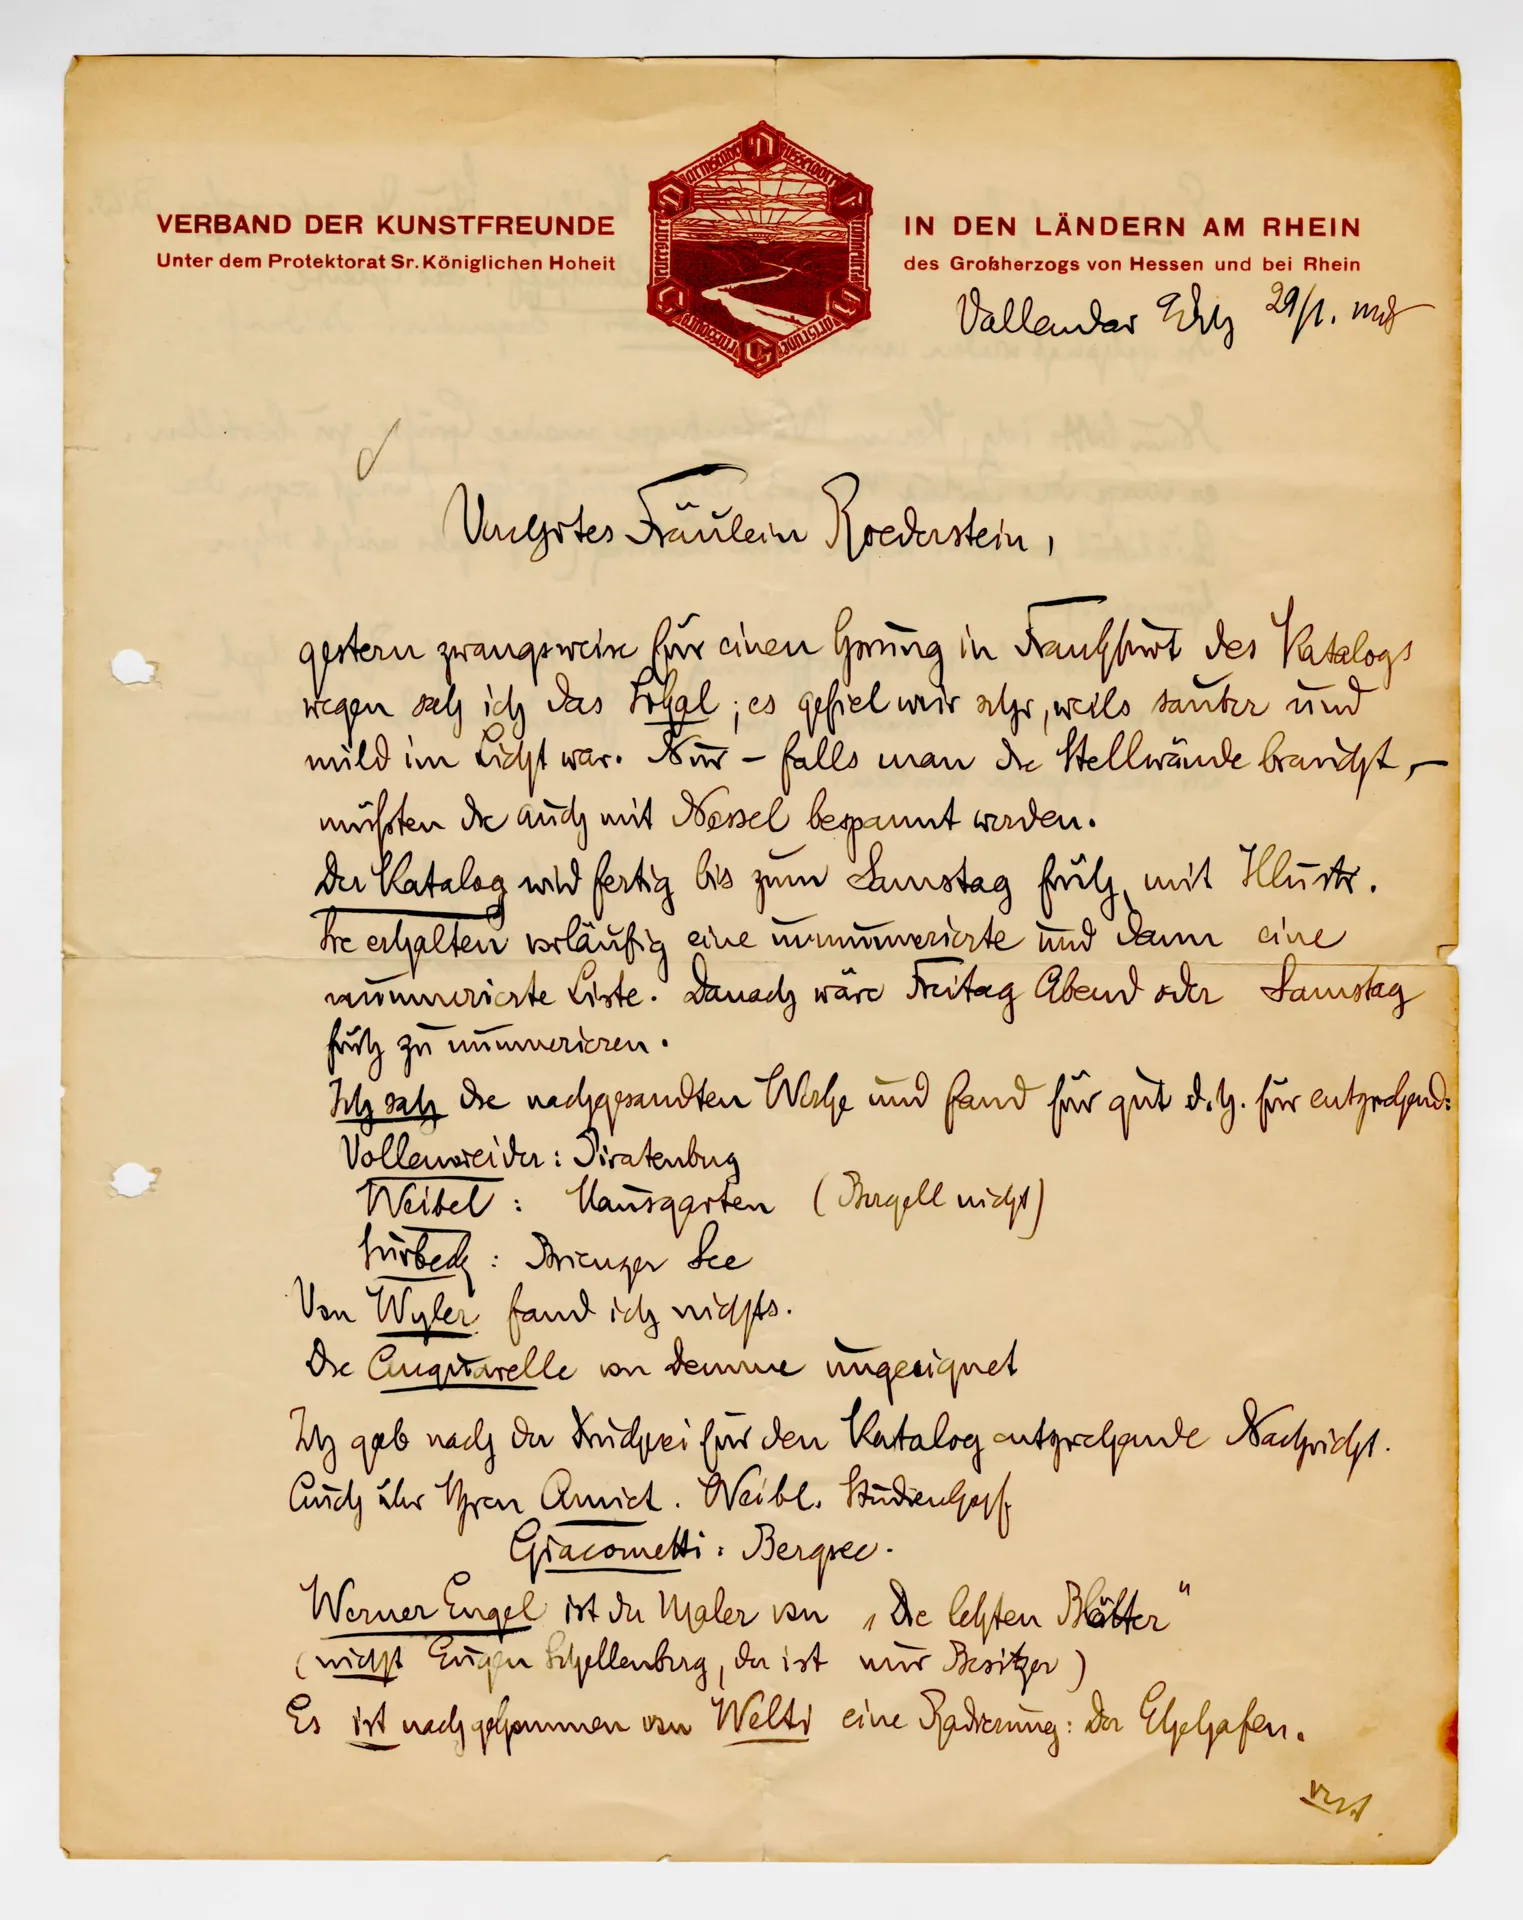 VERBAND DER KUNSTFREUNDE IN DEN LÄNDERN AM RHEIN
Unter dem Protektorat Sr. Königlichen Hoheit des Großherzogs von Hessen und bei Rhein
Vallendar 29/1.
Verehrtes Fräulein Roederstein,
gestern zwangsweise für einen Sprung in Frankfurt des Katalogs
wegen sah ich das Lokal; es gefiel mir sehr, weils sauber und
mild im Licht war. Nur – falls man die Stellwände braucht, –
müßten die auch mit Nessel bespannt werden.
Der Katalog wird fertig bis zum Samstag früh, mit Illustr.
Sie erhalten vorläufig eine unnummerierte und dann eine
nummerierte Liste. Danach wäre Freitag Abend oder Samstag
früh zu nummerieren.
Ich sah die nachgesandten Werke und fand für gut d.h. für entsprechend:
Vollenweider: Piratenburg
Weibel: Hausgarten (Bergell nicht)
Surbek: Brienzer See
Von Wyler fand ich nichts.
Die Aquarelle von Demme ungeeignet
Ich gab nach der Druckerei für den Katalog entsprechende Nachricht.
Auch über Ihren Amiet. Weibl. Studienkopf
Giacometti: Bergsee.
Werner Engel ist der Maler von „Die letzten Blätter"
(nicht Eugen Schellenberg, der ist nur Besitzer)
Es ist nachgekommen von Welti eine Radierung: Der Ehehafen.